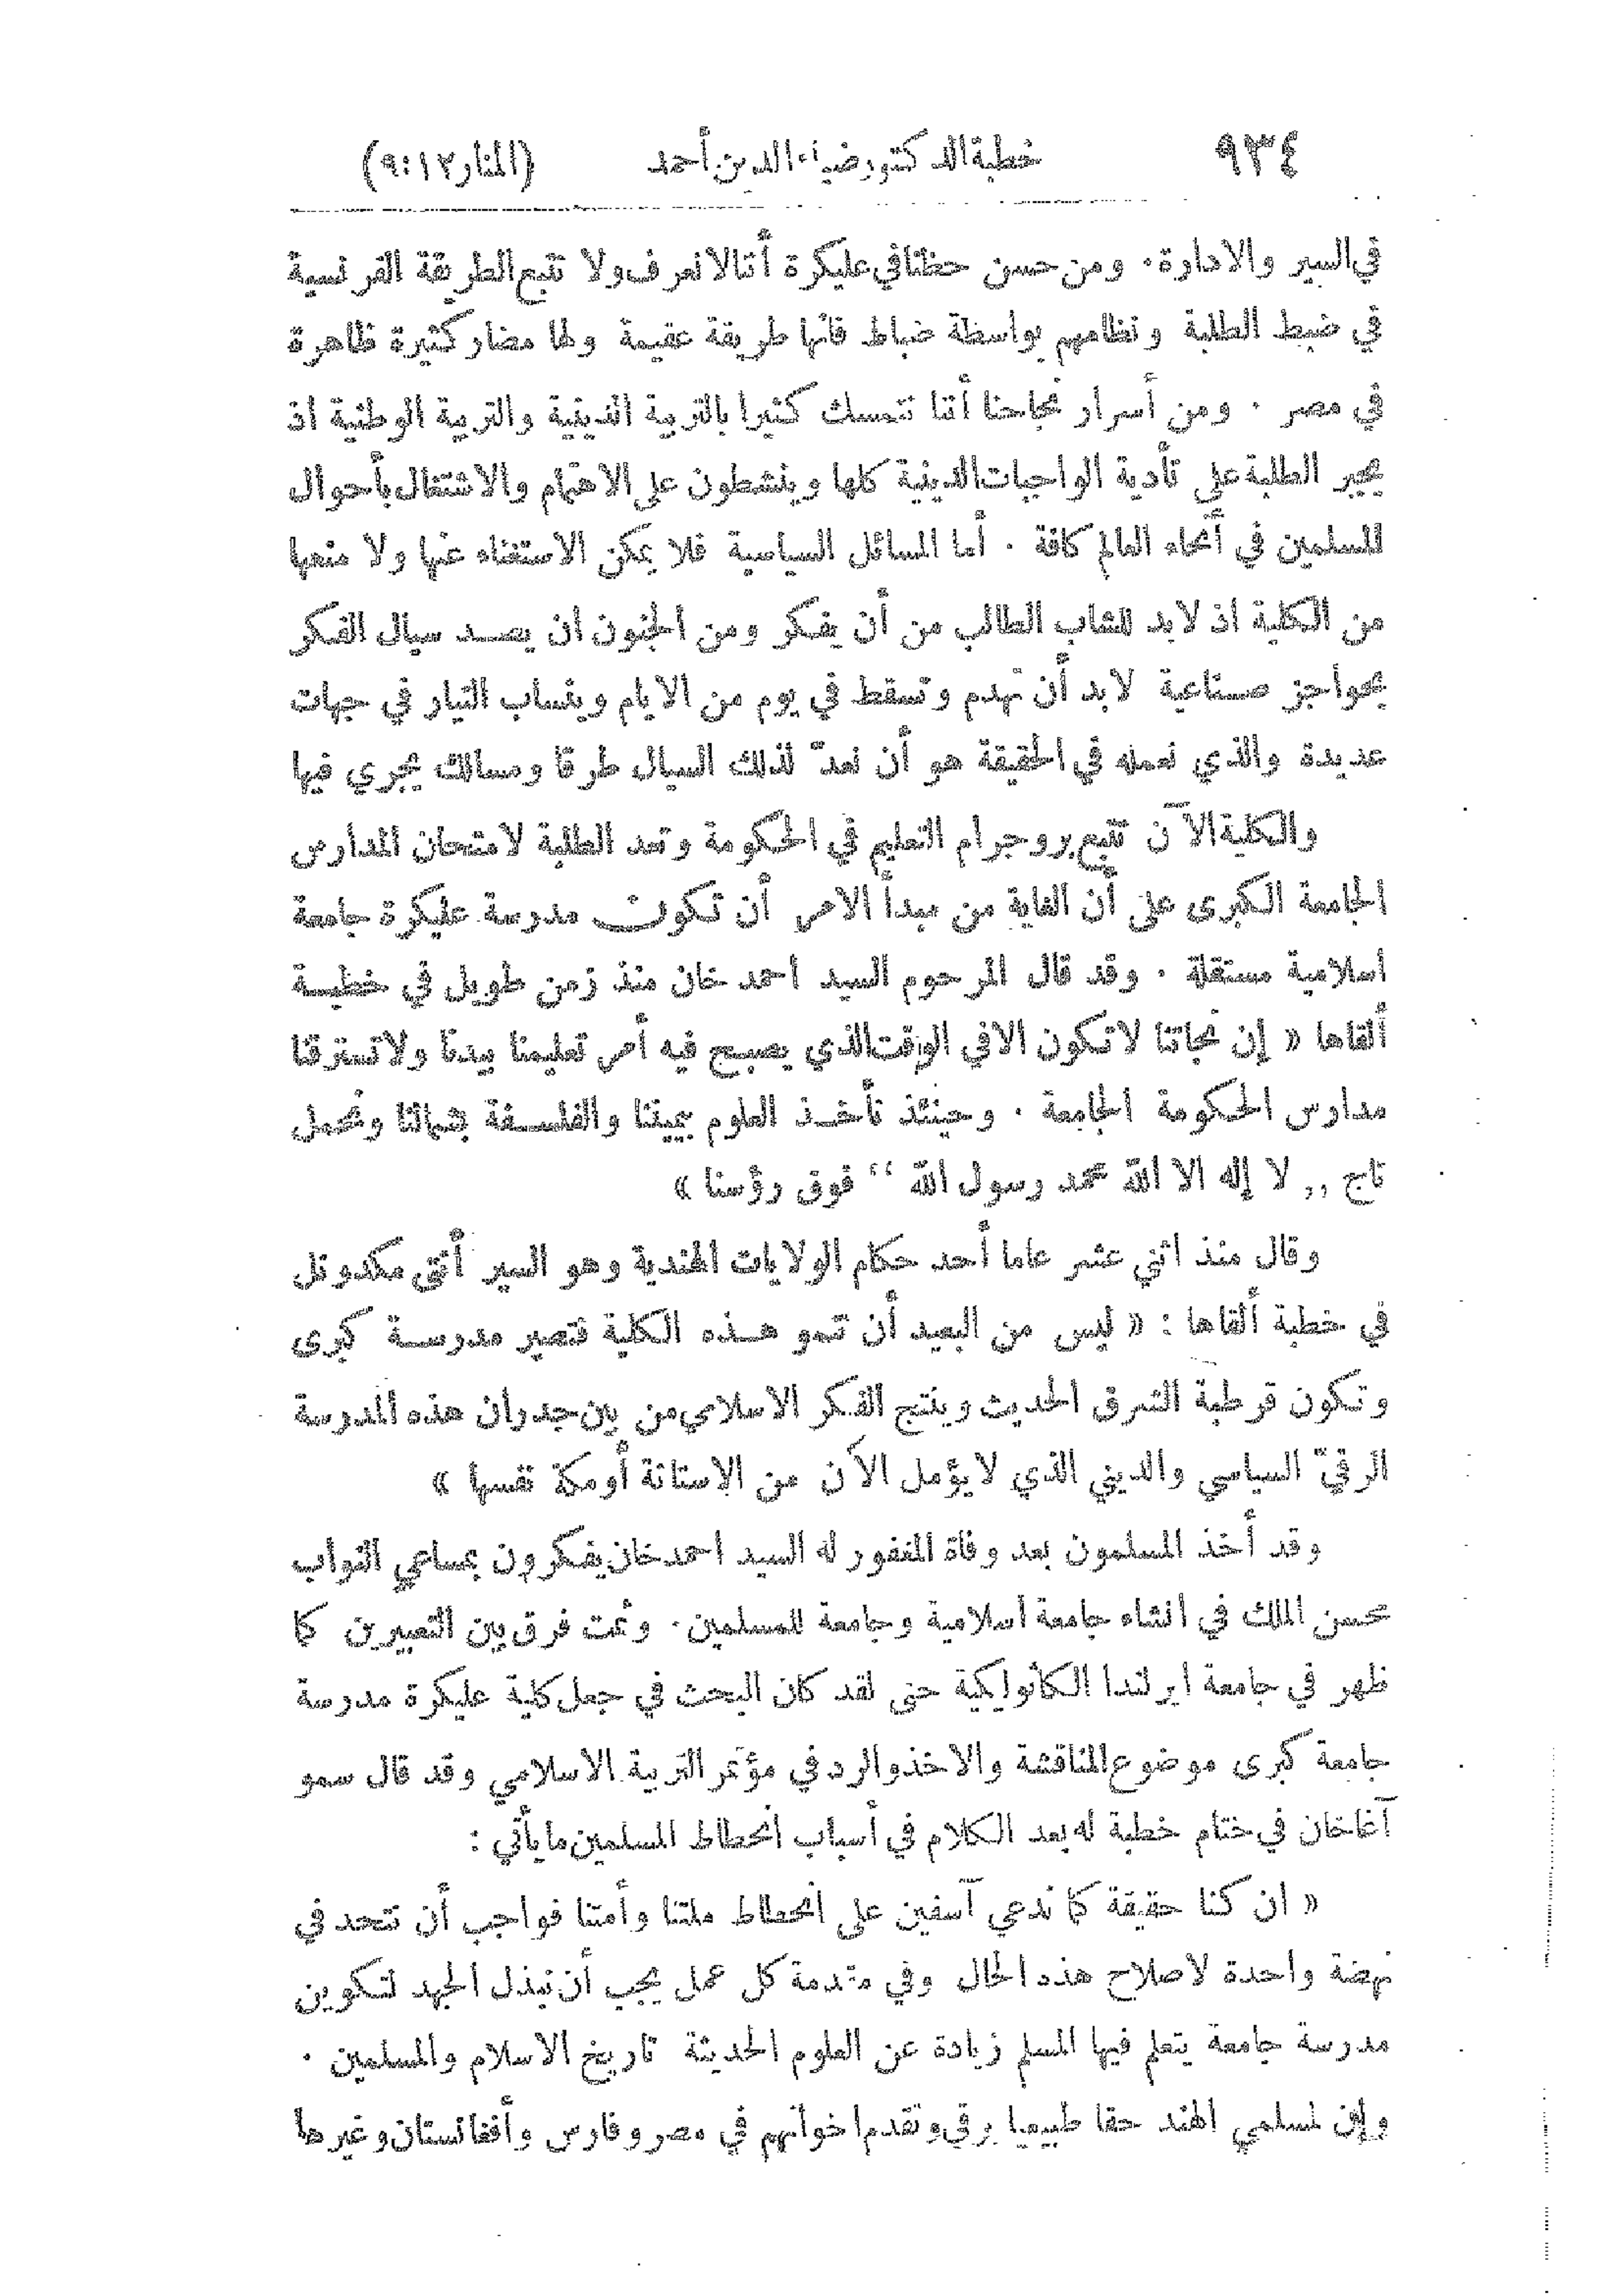 ٩٣٤ خطبة الدكتور ضياء الدين أحمد (المنار ١٢:٩)
في السير والادارة. ومن حسن حظنا في عليكرة أننا لا نعرف ولا نتبع الطريقة الفرنسية
في ضبط الطلبة ونظامهم بواسطة ضباط فانها طريقة عقيمة ولها مضار كثيرة ظاهرة
في مصر. ومن أسرار نجاحنا أننا نتمسك كثيرا بالتربية الدينية والتربية الوطنية اذ
يجبر الطلبة على تأدية الواجبات الدينية كلها وينشطون على الاهتمام والاشتغال بأحوال
المسلمين في أنحاء العالم كافة. أما المسائل السياسية فلا يمكن الاستغناء عنها ولا منعها
من الكلية اذ لابد للشاب الطالب من أن يفكر ومن الجنون ان يصد سيال الفكر
بحواجز صناعية لابد أن تهدم وتسقط في يوم من الايام وينساب التيار في جهات
عديدة والذي نعمله في الحقيقة هو أن نعدّ لذلك السيال طرقا ومسالك يجري فيها
والكلية الآن تتبع بروجرام التعليم في الحكومة وتعد الطلبة لامتحان المدارس
الجامعة الكبرى على أن الغاية من مبدأ الامر أن تكون مدرسة عليكرة جامعة
اسلامية مستقلة. وقد قال المرحوم السيد احمد خان منذ زمن طويل في خطبة
ألقاها « إن نجاتنا لا تكون الا في الوقت الذي يصبح فيه أمر تعليمنا بيدنا ولا تسترقنا
مدارس الحكومة الجامعة. وحينئذ نأخذ العلوم بيميننا والفلسفة بشمالنا ونحمل
تاج ,, لا إله الا الله محمد رسول الله “ فوق رؤسنا »
وقال منذ اثني عشر عاما أحد حكام الولايات الهندية وهو السير أنتى مكدونل
في خطبة ألقاها : « ليس من البعيد أن تنمو هذه الكلية فتصير مدرسة كبرى
وتكون قرطبة الشرق الحديث وينتج الفكر الاسلامي من بين جدران هذه المدرسة
الرقيّ السياسي والديني الذي لا يؤمل الآن من الاستانة أو مكة نفسها »
وقد أخذ المسلمون بعد وفاة المغفور له السيد احمد خان يفكرون بمساعي النواب
محسن الملك في انشاء جامعة اسلامية وجامعة للمسلمين. وثمت فرق بين التعبيرين كما
ظهر في جامعة ايرلندا الكاثوليكية حتى لقد كان البحث في جعل كلية عليكرة مدرسة
جامعة كبرى موضوع المناقشة والاخذ والرد في مؤتمر التربية الاسلامي وقد قال سمو
آغاخان في ختام خطبة له بعد الكلام في أسباب انحطاط المسلمين ما يأتي :
« ان كنا حقيقة كما ندعي آسفين على انحطاط ملتنا وأمتنا فواجب أن نتحد في
نهضة واحدة لاصلاح هذه الحال وفي مقدمة كل عمل يجب أن نبذل الجهد لتكوين
مدرسة جامعة يتعلم فيها المسلم زيادة عن العلوم الحديثة تاريخ الاسلام والمسلمين.
وإن لمسلمي الهند حقا طبيعيا برقي وتقدم اخوانهم في مصر وفارس وأفغانستان وغيرها